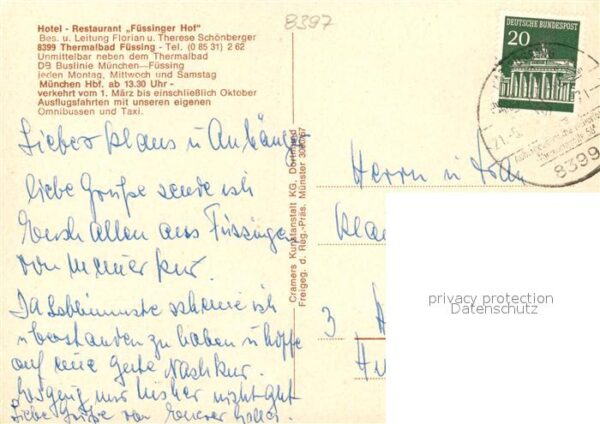 8397
Hotel - Restaurant „Füssinger Hof"
Bes. u. Leitung Florian u. Therese Schönberger
8399 Thermalbad Füssing - Tel. (0 85 31) 2 62
Unmittelbar neben dem Thermalbad
DB Buslinie München—Füssing
jeden Montag, Mittwoch und Samstag
München Hbf. ab 13.30 Uhr -
verkehrt vom 1. März bis einschließlich Oktober
Ausflugsfahrten mit unseren eigenen
Omnibussen und Taxi.
Lieber Klaus u Anhänge
liebe Grüße sende ich
Euch Allen aus Füssingen
von meiner Kur.
Da Schlimmste scheine ich
überstanden zu haben u hoffe
auf eine gute Nachkur.
ging mir bisher nicht gut
Liebe Grüße von
Cramers Kunstanstalt KG, Dortmund
Freigeg. d. Reg.-Präs. Münster 3080/67
DEUTSCHE BUNDESPOST
20
21.-5.
8399
Herrn u
Kla
3 H
privacy protection
Datenschutz